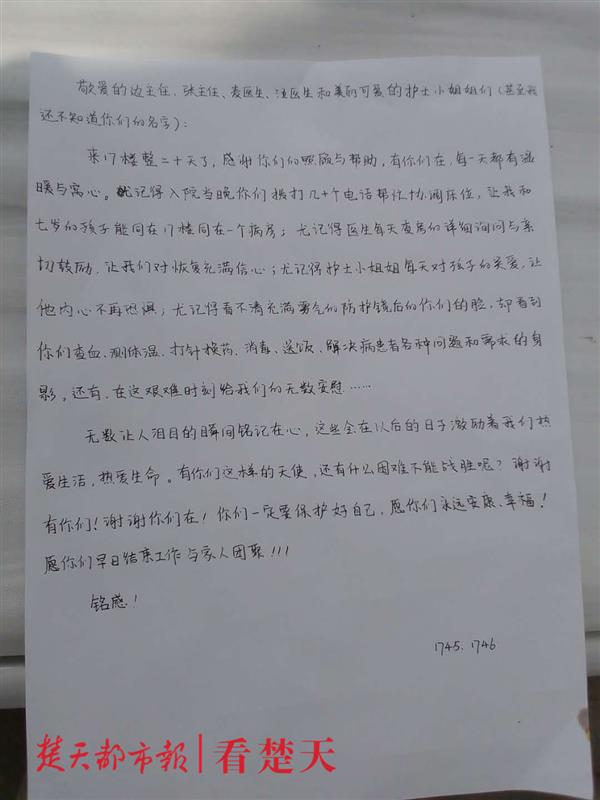 敬爱的边主任、张主任、麦医生、汪医生和美丽可爱的护士小姐姐们(甚至我
还不知道你们的名字):
来17楼整二十天了,感谢你们的照顾与帮助,有你们在,每一天都有温
暖与窝心。犹记得入院当晚你们拨打几十个电话帮忙协调床位,让我和
七岁的孩子能同在17楼同在一个病房;尤记得医生每天查房的详细询问与亲
切鼓励,让我们对恢复充满信心;尤记得护士小姐姐每天对孩子的关爱,让
他内心不再恐惧;尤记得看不清充满雾气的防护镜后的你们的脸,却看到
你们查血、测体温、打针换药、消毒、送饭、解决病患者各种问题和需求的身
影。还有,在这艰难时刻给我们的无数安慰……
无数让人泪目的瞬间铭记在心,这些会在以后的日子激励着我们热
爱生活,热爱生命。有你们这样的天使,还有什么困难不能战胜呢?谢谢
有你们!谢谢你们在!你们一定要保护好自己,愿你们永远安康、幸福!
愿你们早日结束工作与家人团聚!!!
铭感!
1745、1746
楚天都市報|看楚天